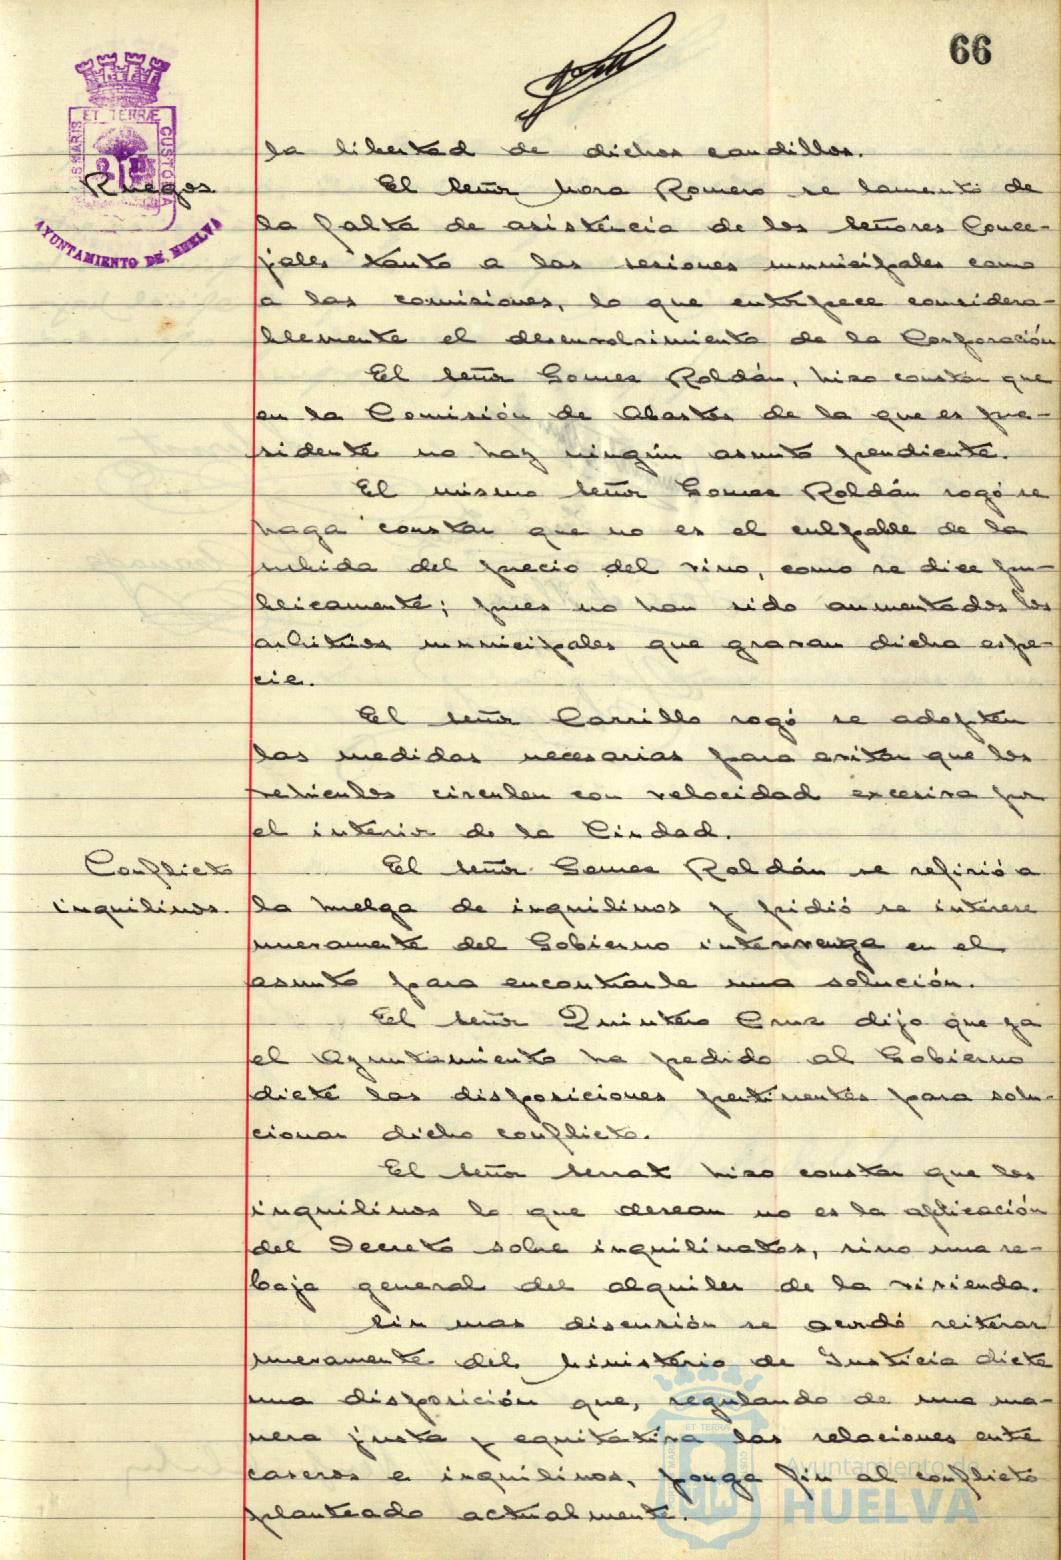 66
ET TERRÆ
CUSTODIA
AYUNTAMIENTO DE HUELVA
la libertad de dichos caudillos.
Ruegos
El señor Mora Romero se lamentó de
la falta de asistencia de los señores Conce-
jales tanto a las sesiones municipales como
a las comisiones, lo que entorpece considera-
blemente el desenvolvimiento de la Corporación
El señor Gomez Roldán, hizo constar que
en la Comisión de Abastos de la que es pre-
sidente no hay ningún asunto pendiente.
El mismo señor Gomez Roldán rogó se
haga constar que no es el culpable de la
subida del precio del vino, como se dice pu-
blicamente; pues no han sido aumentados los
arbitrios municipales que gravan dicha espe-
cie.
El señor Carrillo rogó se adopten
las medidas necesarias para evitar que los
vehiculos circulen con velocidad excesiva por
el interior de la Ciudad.
Conflicto
inquilinos.
El señor Gomez Roldán se refirió a
la huelga de inquilinos y pidió se interese
nuevamente del Gobierno intervenga en el
asunto para encontrarle una solución.
El señor Quintero Cruz dijo que ya
el Ayuntamiento ha pedido al Gobierno
dicte las disposiciones pertinentes para solu-
cionar dicho conflicto.
El señor Serrat hizo constar que los
inquilinos lo que desean no es la aplicación
del Decreto sobre inquilinatos, sino una re-
baja general del alquiler de la vivienda.
Sin mas discusión se acordó reiterar
nuevamente del Ministerio de Justicia dicte
una disposición que, regulando de una ma-
nera justa y equitativa las relaciones entre
caseros e inquilinos, ponga fin al conflicto
planteado actualmente.
Ayuntamiento de
HUELVA